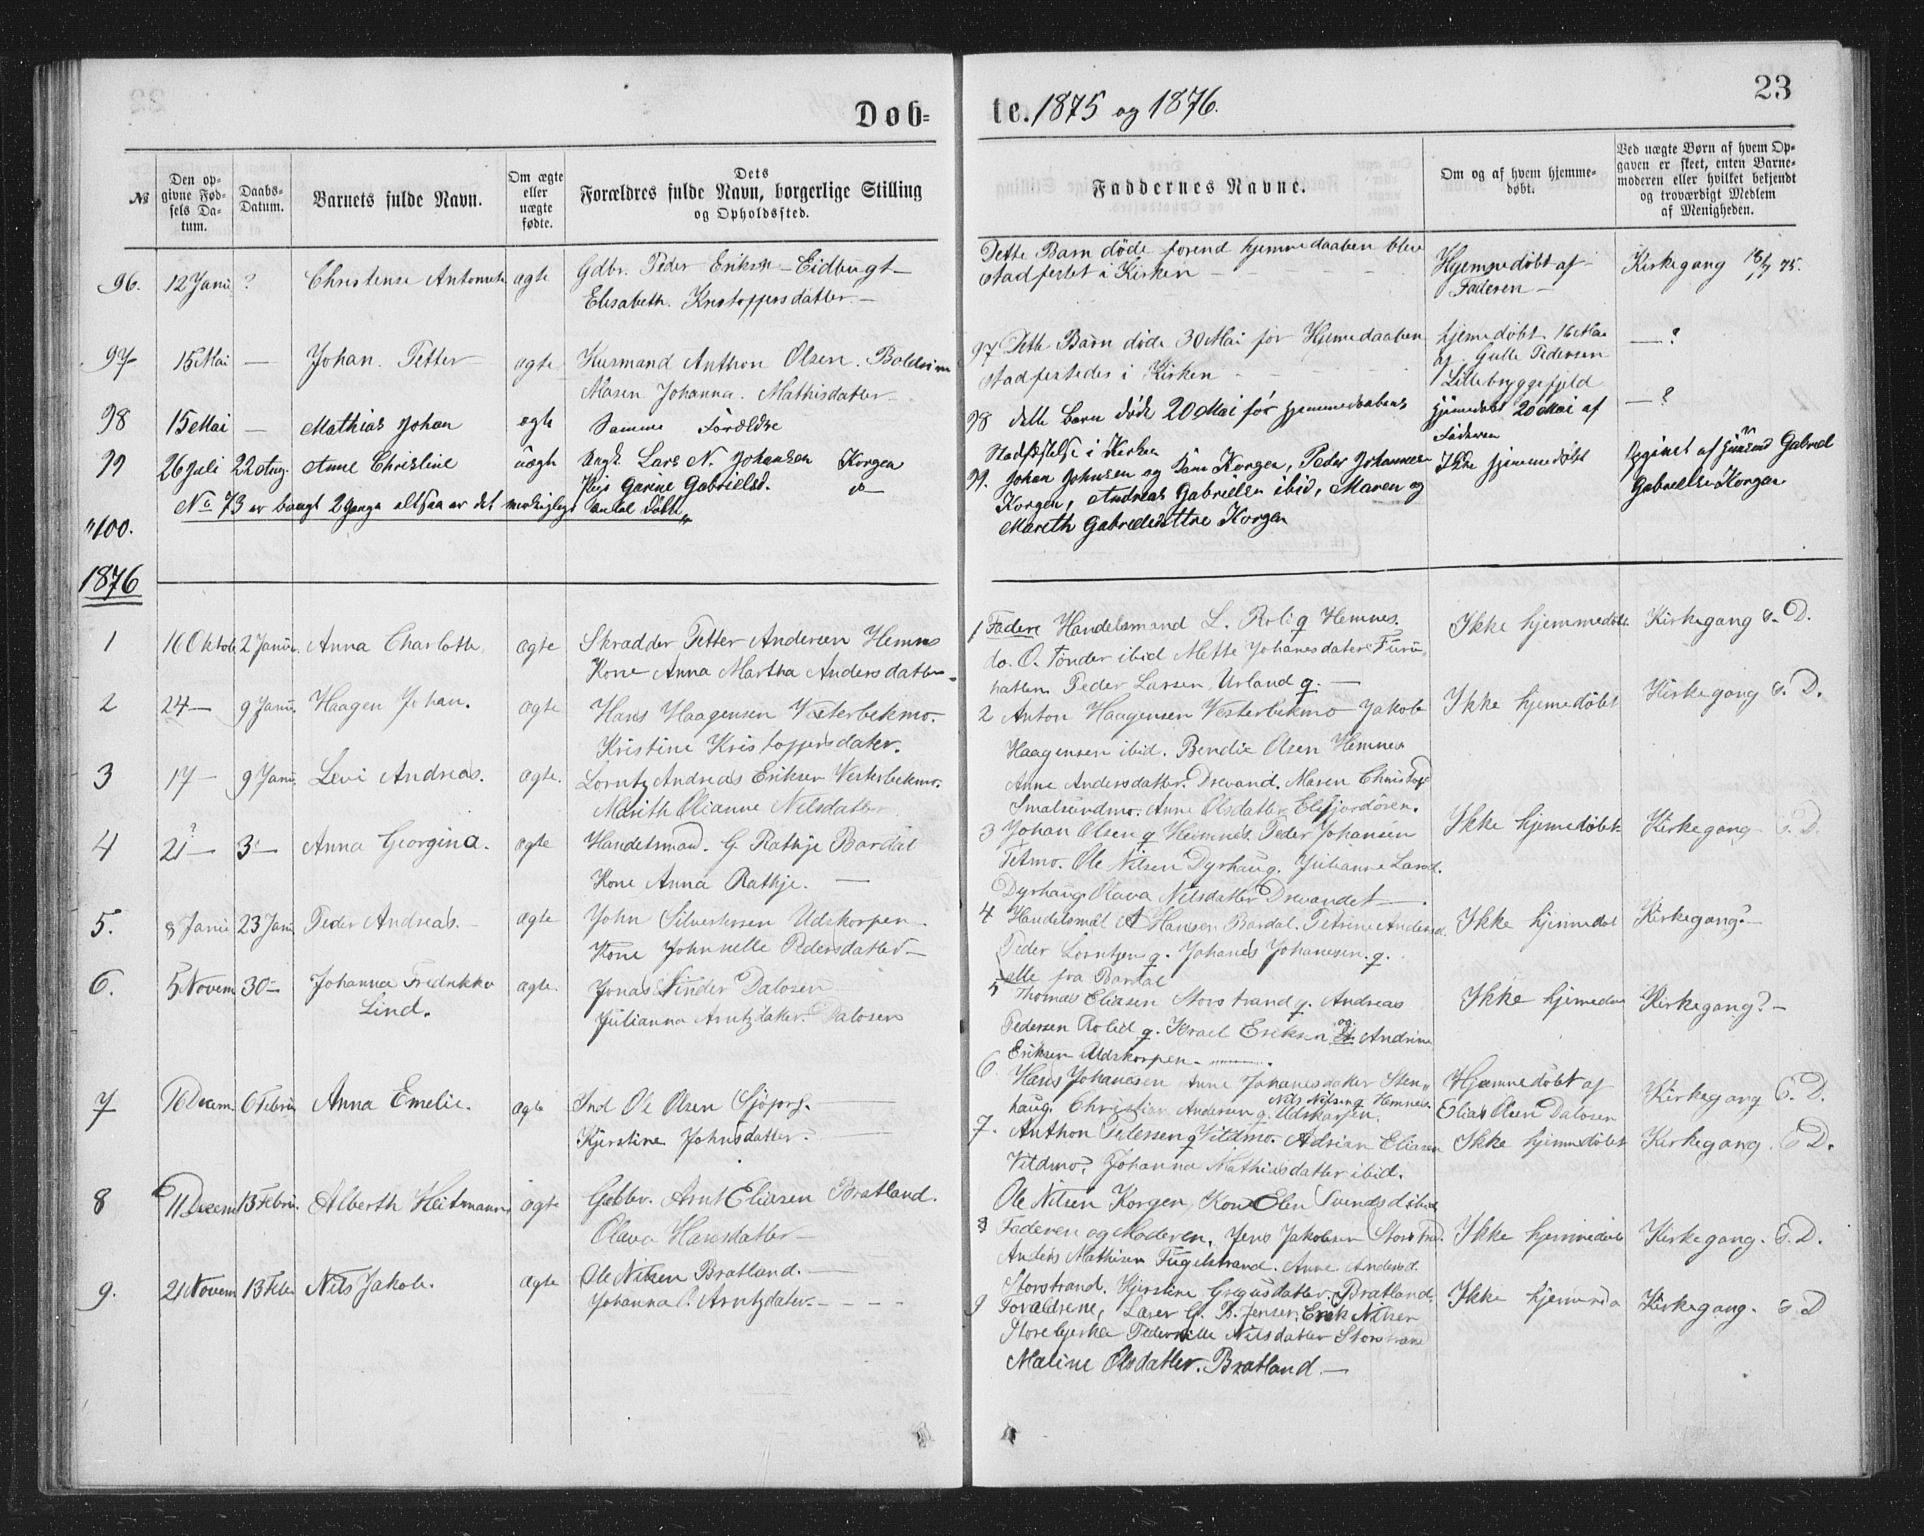 Døb=te. 1875 og 1876.
23
№
Den opgivne Fødsels Datum.
Daabs-Datum.
Barnets fulde Navn.
Om ægte eller uægte fødte.
Dets Forældres fulde Navn, borgerlige Stilling og Opholdssted.
Faddernes Navne.
Om og af hvem hjemmedøbt.
Ved uægte Børn af hvem Opgaven er skeet, enten Barnemoderen eller hvilket bekjendt og troværdigt Medlem af Menigheden.
96. 12 Janu ? Christense Antonnete ægte Gdbr. Peder Eriksen Eidbugt
Elisabeth Kristoffersdatter
Dette Barn døde forend hjemmedaaben blev
stadfestet i Kirken
Hjemmedøbt af
Faderen
Kirkegang 18/7 75.
97 15 Mai — Johan Petter ægte Husmand Anthon Olsen
Maren Johanna Mathisdatter
97 Dette Barn døde 30 Mai før Hjemedaaben
stadfestedes i Kirken
hjemedøbt 16 Mai
af Gulle Pedersen
Lillebryggefjeld
— ?
98 15 Mai — Mathias Johan ægte Samme Foreldre
98 dette barn døde 20 Mai før hjemmedaabens
Stadfestelse i Kirken
hjemedøbt 20 Mai af
Faderen
— ?
99 26 Juli 22 Aug. Anne Christine uægte Ungk. Lars N. Johansen Korgen
Pige Garine Gabrielsd. do
99. Johan Johnsen og Korgen, Peder Johannesen
Korgen, Andreas Gabrielsen ibid, Maren og
Mareth Gabrielsdttre Korgen
Ikke hjemmedøbt
Opgivet af Gabriel
Gabrielsen Korgen
"100. No 73 er brugt 2 Gange altsaa er det Antal Døbte
1876
1 16 Oktob 2 Janu. Anna Charlotte ægte Skrædder Petter Andersen Hemnes
Kone Anna Martha Andersdatter
1 Fadere Handelsmand L. Rolig Hemnes.
do. O. Tønder ibid Mette Johanesdater Furu-
hatten Peder Larsen, Urland g.
Ikke hjemmedøbt Kirkegang s. D.
2 24 — 9 Janu. Haagen Johan. ægte Hans Haagensen Vesterbekmo.
Kristine Kristoffersdater.
2 Anton Haagensen Vesterbekmo Jakob
Haagensen ibid. Bendix Olsen Hemnes
Anne Andersdatter Drevand. Maren Christof
Smalsundmo. Anne Olsdatter Elsfjordøren.
Ikke hjemedøbt Kirkegang s. D.
3 17 — 9 Janu. Levi Andreas. ægte. Lorntz Andreas Eriksen Vesterbekmo.
Marith Olianne Nilsdatter
3 Johan Olsen g Hemnes. Peder Johansen
Tetmo. Ole Nilsen Dyrhaug. Julianne Larsd.
Dyrhaug. Olava Nilsdatter Drevandet
Ikke hjemedøbt Kirkegang s. D.
4 21 — 3 — Anna Georgina. ægte Handelsmand. G. Rathje Bardal
Kone Anna Rathje.
4 Handelsmd A Hansen Bardal. Petrine Andersd.
Peder Lorntzen g. Johanes Johanesen. g.
alle fra Bardal
Ikke hjemmedøbt Kirkegang?
5. 8 Janu 23 Janu Peder Andreas. ægte John Silvestersen Udskorpen
Kone Johnnette Pedersdatter
5 Thomas Eliasen Storstrand g. Andreas
Pedersen Rolid g. Israel Eriksen og Andrine
Eriksen Udskorpen
Ikke hjemedøbt Kirkegang?
6. 5 Novem 30 — Johanna Fredrikke
Lind.
ægte. Jonas Dalosen
Julianna Arntzdatter. Dalosen
6 Hans Johanesen Anne Johanesdater Sten-
haug. Christian Andersen g. Udskorpen. Nils Nilsen g Hemnes.
Hjemmedøbt af
Elias Olsen Dalosen
Kirkegang s. D.
7 16 Decem 6 Febru Anna Emelie. ægte Ind Ole Olsen
Kjerstine Johnsdatter.
7. Anthon Petersen g Vildmo. Adrian Eliasen
Vildmo. Johanna Mathiasdatter ibid.
Ole Nilsen Korgen, Kone Elen
Ikke hjemmedøbt Kirkegang. s. D.
8 11 Decem 13 Febru. Alberth Heitmann ægte Gaardbr. Arnt Eliasen Bratland.
Olava Hansdatter
8 Faderen og Moderen. Jens Jakobsen Storstrand.
Anders Mathisen Fugelstrand. Anne Andersd.
Storstrand. Kjerstine Bratland.
Ikke hjemmedøbt Kirkegang. s. D.
9. 21 Novem 13 Feb Nils Jakob. ægte Ole Nilsen Bratland.
Johanna Arntzdater.
9 Forældrene, Lærer G. B. Jensen. Erik Nilsen
Storebjerka Pedernille Nilsdatter Storstrand
Maline Olsdatter. Bratland
Ikke Kirkegang. s. D